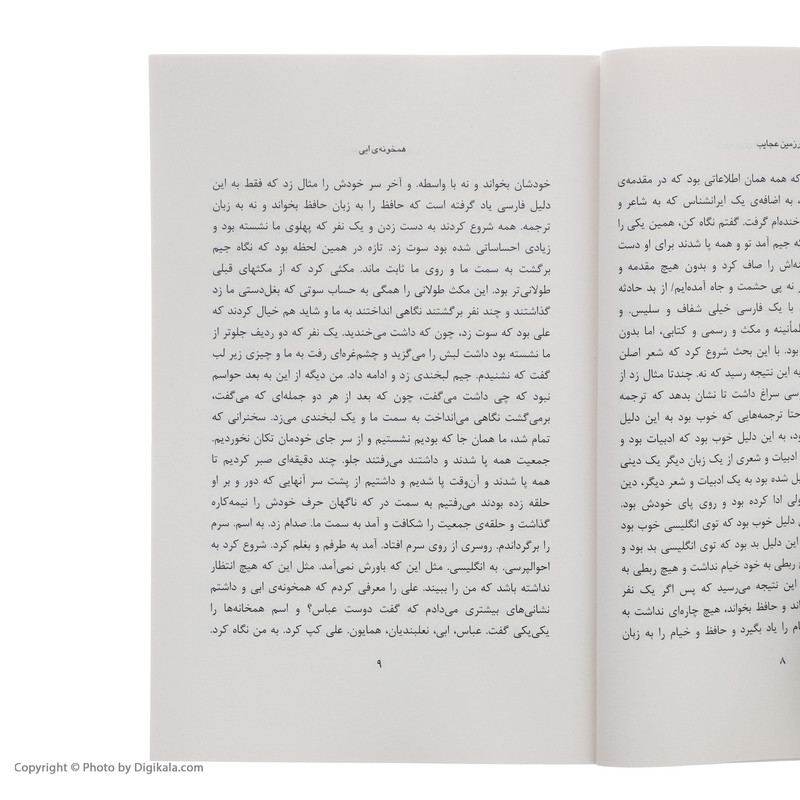 رزمین عجایب
که همه همان اطلاعاتی بود که در مقدمه‌ی
، به اضافه‌ی یک ایرانشناس که به شاعر و
خنده‌ام گرفت. گفتم نگاه کن، همین یکی را
که جیم آمد تو و همه پا شدند برای او دست
نه‌اش را صاف کرد و بدون هیچ مقدمه و
ر نه پی حشمت و جاه آمده‌ایم/ از بد حادثه
با یک فارسی خیلی شفاف و سلیس. و
طمأنینه و مکث و رسمی و کتابی، اما بدون
بود. با این بحث شروع کرد که شعر اصلن
به این نتیجه رسید که نه. چندتا مثال زد از
رسی سراغ داشت تا نشان بدهد که ترجمه
حتا ترجمه‌هایی که خوب بود به این دلیل
ود، به این دلیل خوب بود که ادبیات بود و
ادبیات و شعری از یک زبان دیگر یک دینی
یل شده بود به یک ادبیات و شعر دیگر، دین
ولی ادا کرده بود و روی پای خودش بود.
دلیل خوب بود که توی انگلیسی خوب بود
این دلیل بد بود که توی انگلیسی بد بود و
ربطی به خود خیام نداشت و هیچ ربطی به
این نتیجه می‌رسید که پس اگر یک نفر
اند و حافظ بخواند، هیچ چاره‌ای نداشت به
ام را یاد بگیرد و حافظ و خیام را به زبان
۸
همخونه‌ی ابی
خودشان بخواند و نه با واسطه. و آخر سر خودش را مثال زد که فقط به این
دلیل فارسی یاد گرفته است که حافظ را به زبان حافظ بخواند و نه به زبان
ترجمه. همه شروع کردند به دست زدن و یک نفر که پهلوی ما نشسته بود و
زیادی احساساتی شده بود سوت زد. تازه در همین لحظه بود که نگاه جیم
برگشت به سمت ما و روی ما ثابت ماند. مکثی کرد که از مکثهای قبلی
طولانی‌تر بود. این مکث طولانی را همگی به حساب سوتی که بغل‌دستی ما زد
گذاشتند و چند نفر برگشتند نگاهی انداختند به ما و شاید هم خیال کردند که
علی بود که سوت زد، چون که داشت می‌خندید. یک نفر که دو ردیف جلوتر از
ما نشسته بود داشت لبش را می‌گزید و چشم‌غره‌ای رفت به ما و چیزی زیر لب
گفت که نشنیدم. جیم لبخندی زد و ادامه داد. من دیگه از این به بعد حواسم
نبود که چی داشت می‌گفت، چون که بعد از هر دو جمله‌ای که می‌گفت،
برمی‌گشت نگاهی می‌انداخت به سمت ما و یک لبخندی می‌زد. سخنرانی که
تمام شد، ما همان جا که بودیم نشستیم و از سر جای خودمان تکان نخوردیم.
جمعیت همه پا شدند و داشتند می‌رفتند جلو. چند دقیقه‌ای صبر کردیم تا
همه پا شدند و آن‌وقت پا شدیم و داشتیم از پشت سر آنهایی که دور و بر او
حلقه زده بودند می‌رفتیم به سمت در که ناگهان حرف خودش را نیمه‌کاره
گذاشت و حلقه‌ی جمعیت را شکافت و آمد به سمت ما. صدام زد. به اسم. سرم
را برگرداندم. روسری از روی سرم افتاد. آمد به طرفم و بغلم کرد. شروع کرد به
احوالپرسی. به انگلیسی. مثل این که باورش نمی‌آمد. مثل این که هیچ انتظار
نداشته باشد که من را ببیند. علی را معرفی کردم که همخونه‌ی ابی و داشتم
نشانی‌های بیشتری می‌دادم که گفت دوست عباس؟ و اسم همخانه‌ها را
یکی‌یکی گفت. عباس، ابی، نعلبندیان، همایون. علی کپ کرد. به من نگاه کرد.
۹
Copyright © Photo by Digikala.com